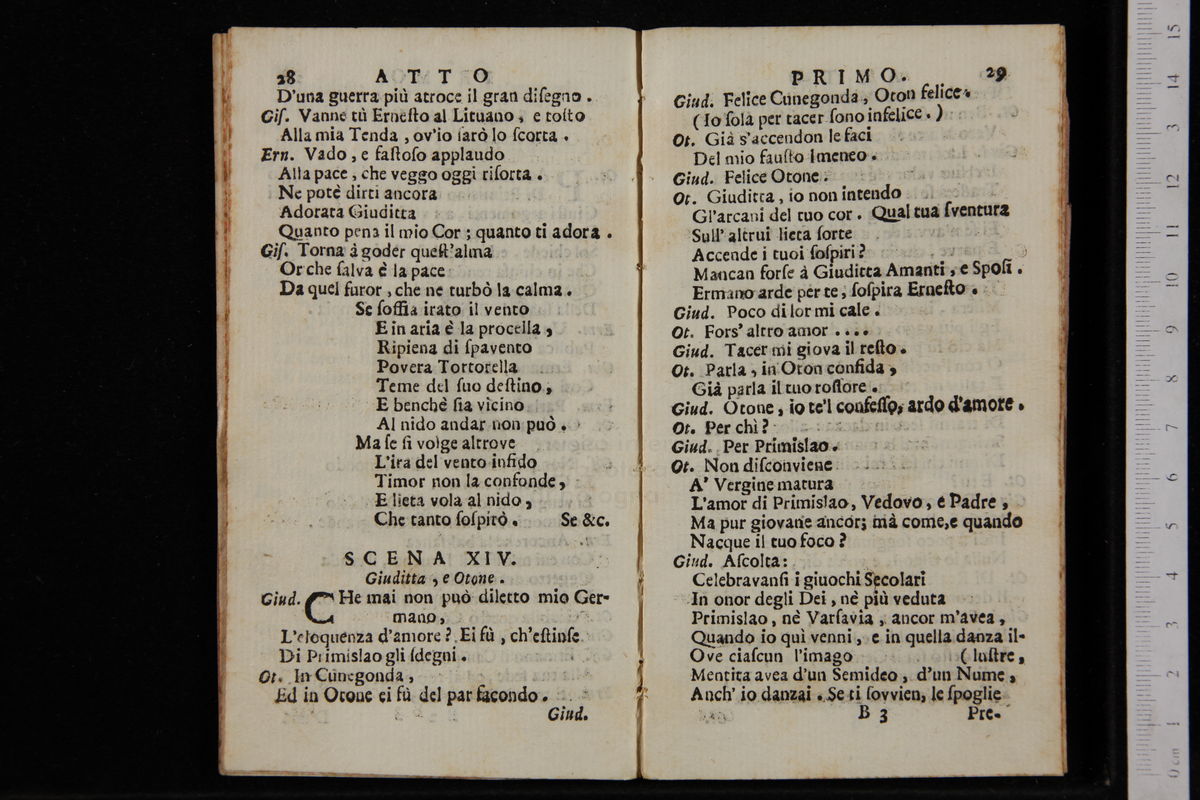 28 ATTO
D'una guerra più atroce il gran diſegno .
Giſ. Vanne tù Erneſto al Lituano , e toſto
Alla mia Tenda , ov'io ſarò lo ſcorta .
Ern. Vado , e faſtoſo applaudo
Alla pace , che veggo oggi riſorta .
Ne potè dirti ancora
Adorata Giuditta
Quanto pena il mio Cor ; quanto ti adora .
Giſ. Torna à goder queſt'alma
Or che ſalva è la pace
Da quel furor , che ne turbò la calma .
Se ſoffia irato il vento
E in aria è la procella ,
Ripiena di ſpavento
Povera Tortorella
Teme del ſuo deſtino ,
E benchè ſia vicino
Al nido andar non può .
Ma ſe ſi volge altrove
L'ira del vento infido
Timor non la confonde ,
E lieta vola al nido ,
Che tanto ſoſpirò . Se &c.
SCENA XIV.
Giuditta , e Otone .
Giud. CHe mai non può diletto mio Ger-
mano ,
L'eloquenza d'amore ? Ei fù , ch'eſtinſe
Di Primislao gli ſdegni .
Ot. In Cunegonda ,
Ed in Otone ei fù del par facondo .
Giud.
PRIMO. 29
Giud. Felice Cunegonda , Oton felice .
( Io ſola per tacer ſono infelice . )
Ot. Già s'accendon le faci
Del mio fauſto Imeneo .
Giud. Felice Otone .
Ot. Giuditta , io non intendo
Gl'arcani del tuo cor . Qual tua ſventura
Sull' altrui lieta ſorte
Accende i tuoi ſoſpiri ?
Mancan forſe à Giuditta Amanti , e Spoſi .
Ermano arde per te , ſoſpira Erneſto .
Giud. Poco di lor mi cale .
Ot. Fors' altro amor . . . .
Giud. Tacer mi giova il reſto .
Ot. Parla , in Oton confida ,
Già parla il tuo roſſore .
Giud. Otone , io te'l confeſſo, ardo d'amore .
Ot. Per chì ?
Giud. Per Primislao .
Ot. Non diſconviene
A' Vergine matura
L'amor di Primislao , Vedovo , e Padre ,
Ma pur giovane ancor; mà come,e quando
Nacque il tuo foco ?
Giud. Aſcolta :
Celebravanſi i giuochi Secolari
In onor degli Dei , nè più veduta
Primislao , nè Varſavia , ancor m'avea ,
Quando io quì venni , e in quella danza il-
Ove ciaſcun l'imago ( luſtre ,
Mentita avea d'un Semideo , d'un Nume ,
Anch' io danzai . Se ti ſovvien, le ſpoglie
B 3 Pre-